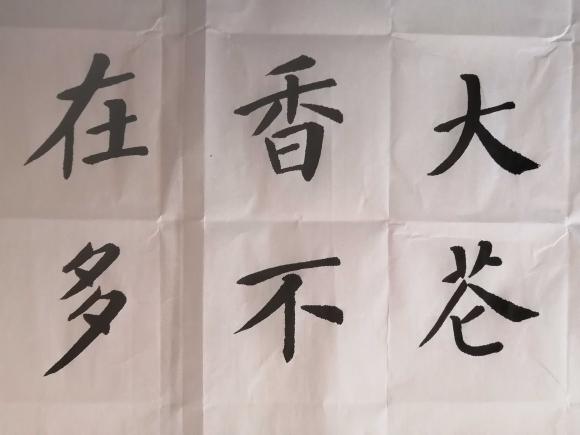 大花
香不
在多